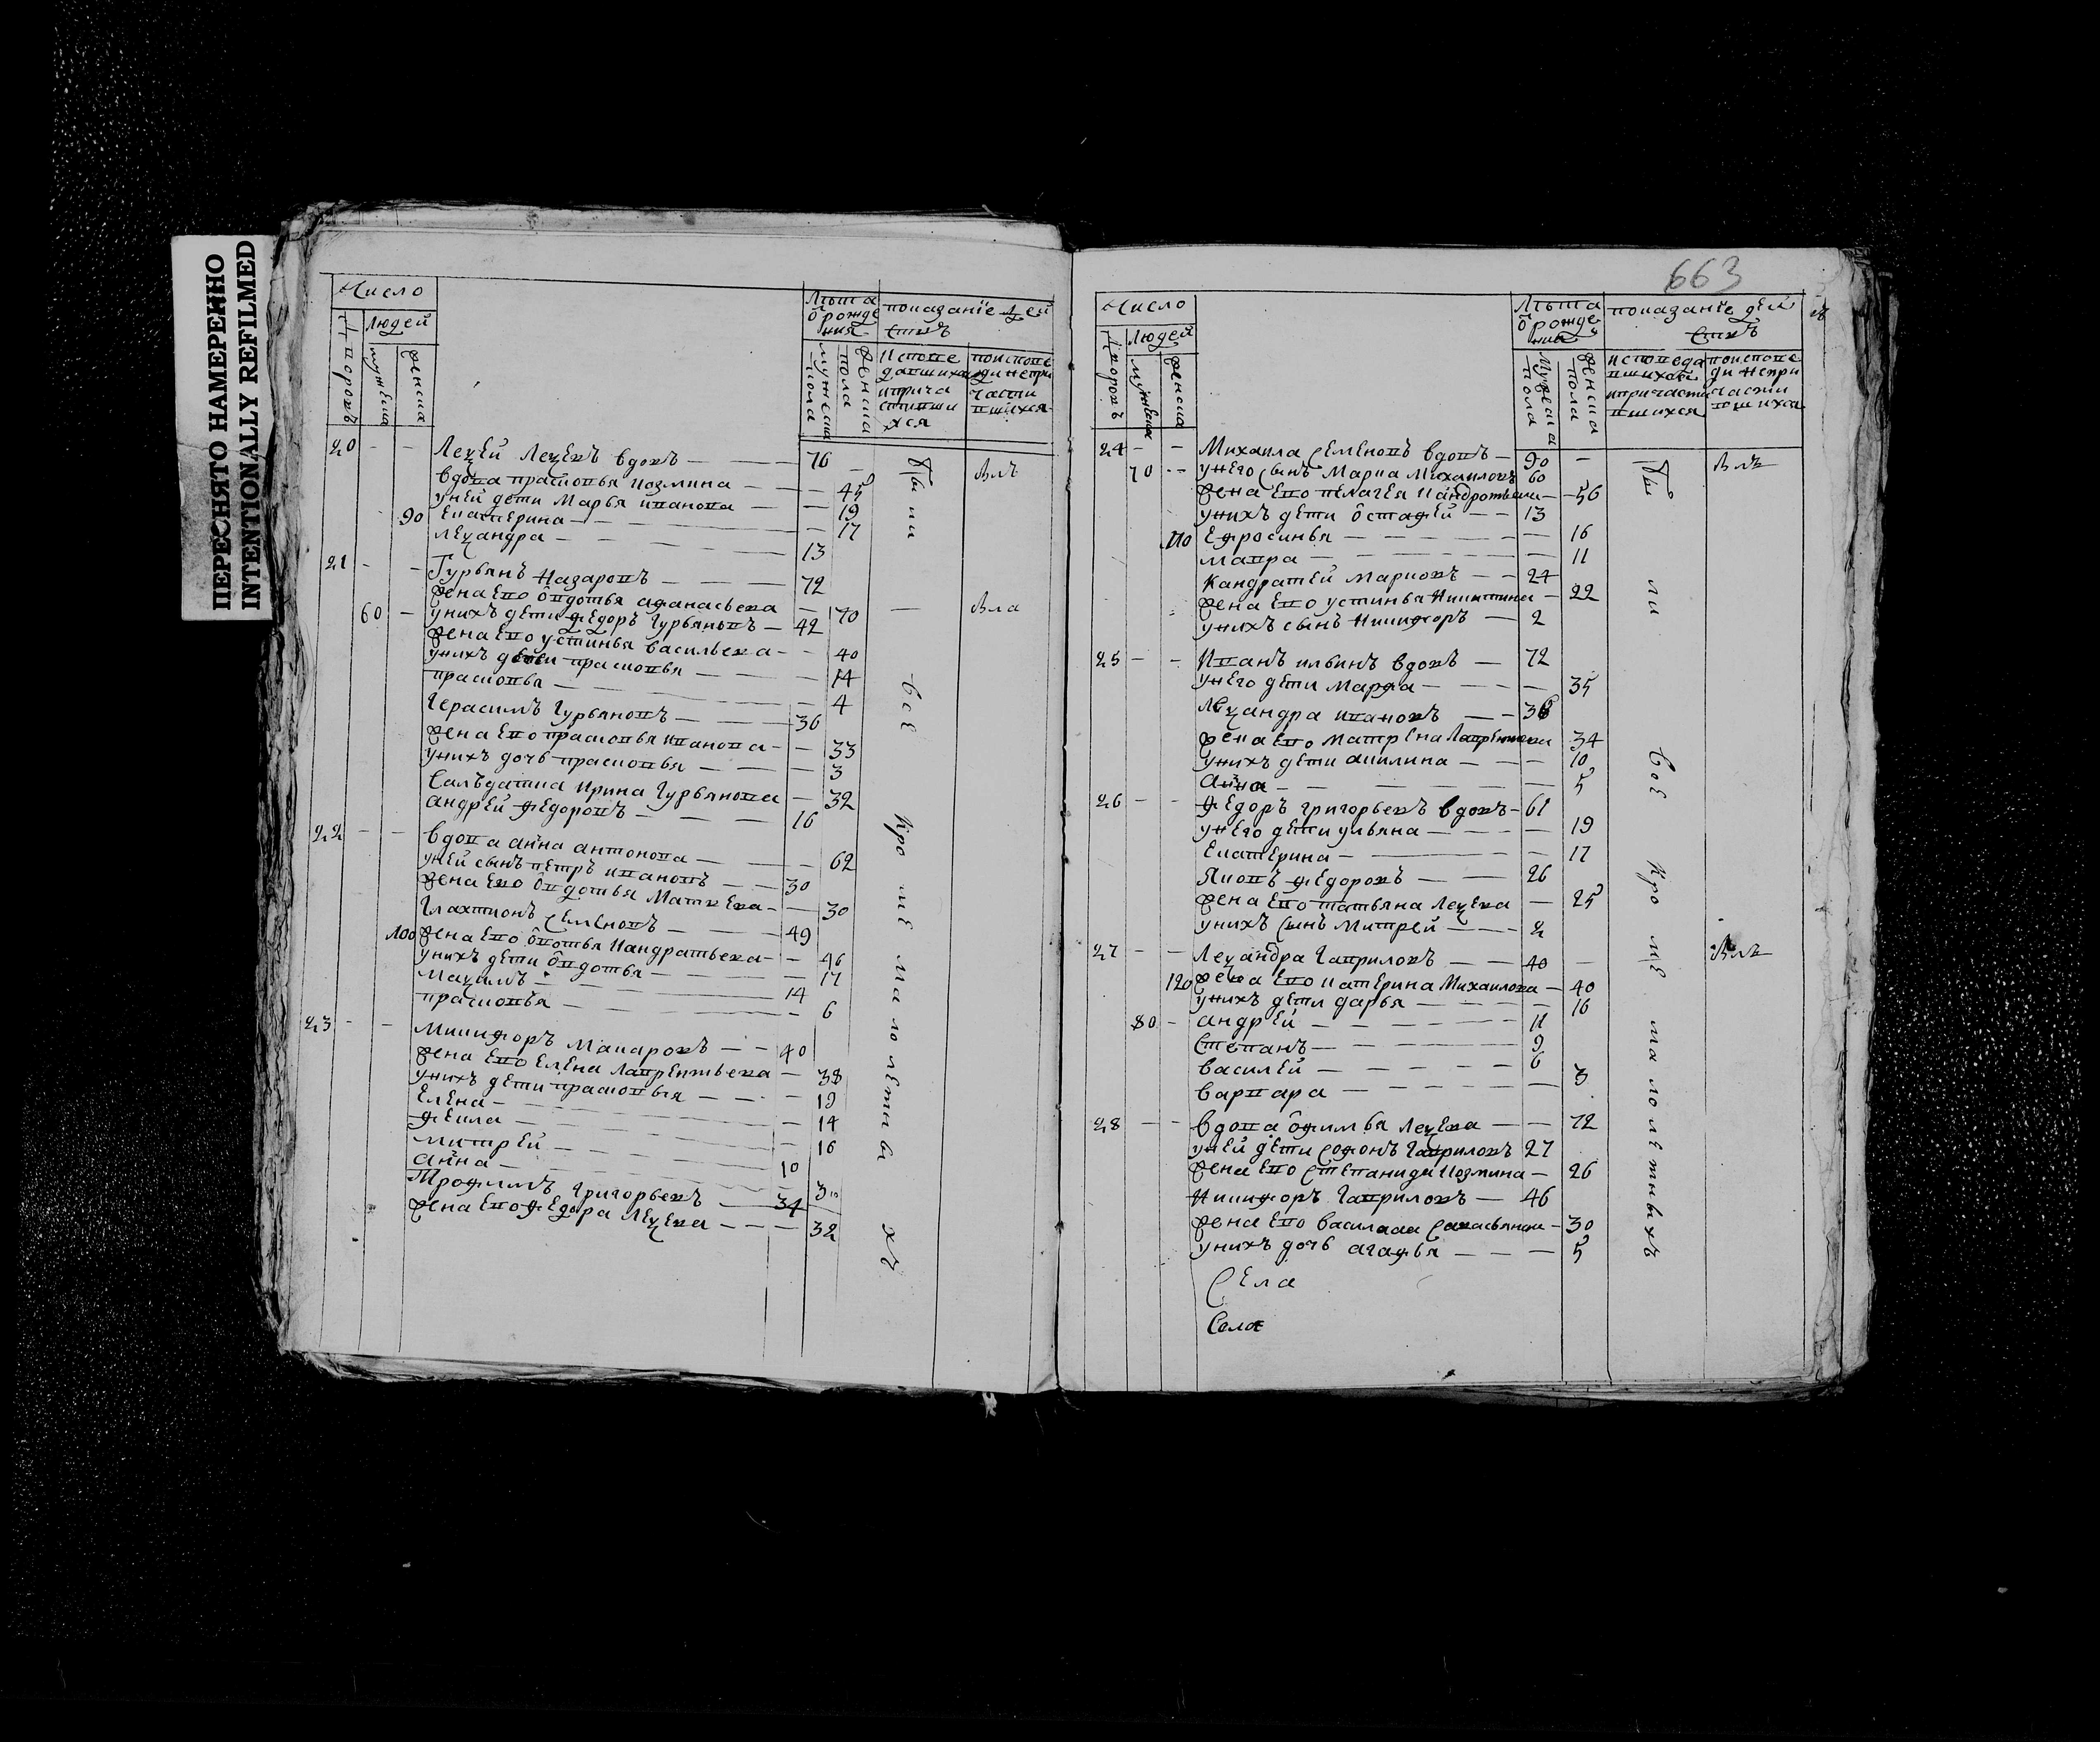 ПЕРЕСНЯТО НАМЕРЕННО
INTENTIONALLY REFILMED
Число
Людей
дворовъ
мужеска
женска
Лѣта
ѿ рожде
ния
мужеска
пола
женска
пола
показанїе дей
ствъ
исповѣ
давшихся
и прича
стивши
хся
по исповѣ
ди не при
части
вшихся
20 - - Леѯей Леѯевъ вдовъ 76 - Влъ
вдова прасковья козмина 45
у ней дети Марья иванова 19
90 Екатерина 17
Леѯандра 13
21 - - Гурьянъ Назаровъ 72
жена ево овдотья афанасьева 70 - Вла
60 - у нихъ дети федоръ гурьяновъ 42
жена ево устинья васильева 40
у нихъ дети прасковья 14
прасковья 4
Герасимъ гурьяновъ 36
жена ево прасковья иванова 33
у нихъ дочь прасковья 3
Салъдатка ирина гурьянова 32
андрей федоровъ 16
22 - - вдова анна антонова 62
у ней сынъ петръ ивановъ 30
жена ево овдотья Матвева 30
Галахтионъ семеновъ 49
100 жена ево овотья Кандратьева 46
у нихъ дети овдотья 17
Маѯимъ 14
прасковья 6
23 - - Микифоръ Макаровъ 40
жена ево елена лаврентьева 38
у нихъ дети прасковья 19
Елена 14
фекла 16
митрей 10
анна 3
Трофимъ григорьевъ 34
жена ево федора Леѯева 32
были
все
кро ме ма ло летны хъ
663
Число
Людей
дворовъ
мужеска
женска
Лѣта
ѿ рожде
ния
мужеска
пола
женска
пола
показанїе дей
ствъ
исповеда
вшихся
и причасти
вшихся
по испове
ди не при
части
вшихся
24 - - Михаила семеновъ вдовъ 90 - Влъ
70 - - у него сынъ Марка Михаиловъ 60
жена ево пелагея Кандротьева 56
у нихъ дети остафей 13
110 Ефросинья 16
мавра 11
Кандратей марковъ 24
жена ево устинья Никитина 22
у нихъ сынъ Никифоръ 2
25 - - Иванъ ильинъ вдовъ 72
у него дети марфа 35
Леѯандра ивановъ 36
жена ево матрена Лаврентьева 34
у нихъ дети акилина 10
анна 5
26 - - федоръ григорьевъ вдовъ 61
у него дети ульяна 19
Екатерина 17
Яковъ федоровъ 26
жена ево татьяна Леѯева 25
у нихъ сынъ Митрей 2
27 - - Леѯандра гавриловъ 40 - Влъ
120 жена ево катерина Михаилова 40
у нихъ дети дарья 16
80 - андрей 11
Степанъ 9
василей 6
варвара 3
28 - - вдова офимья Леѯева 72
у ней дети софонъ гавриловъ 27
жена ево степанида Козмина 26
Никифоръ гавриловъ 46
жена ево василиса 30
у нихъ дочь агафья 5
Села
Села
бы
ли
все
кро ме ма ло ле тны хъ